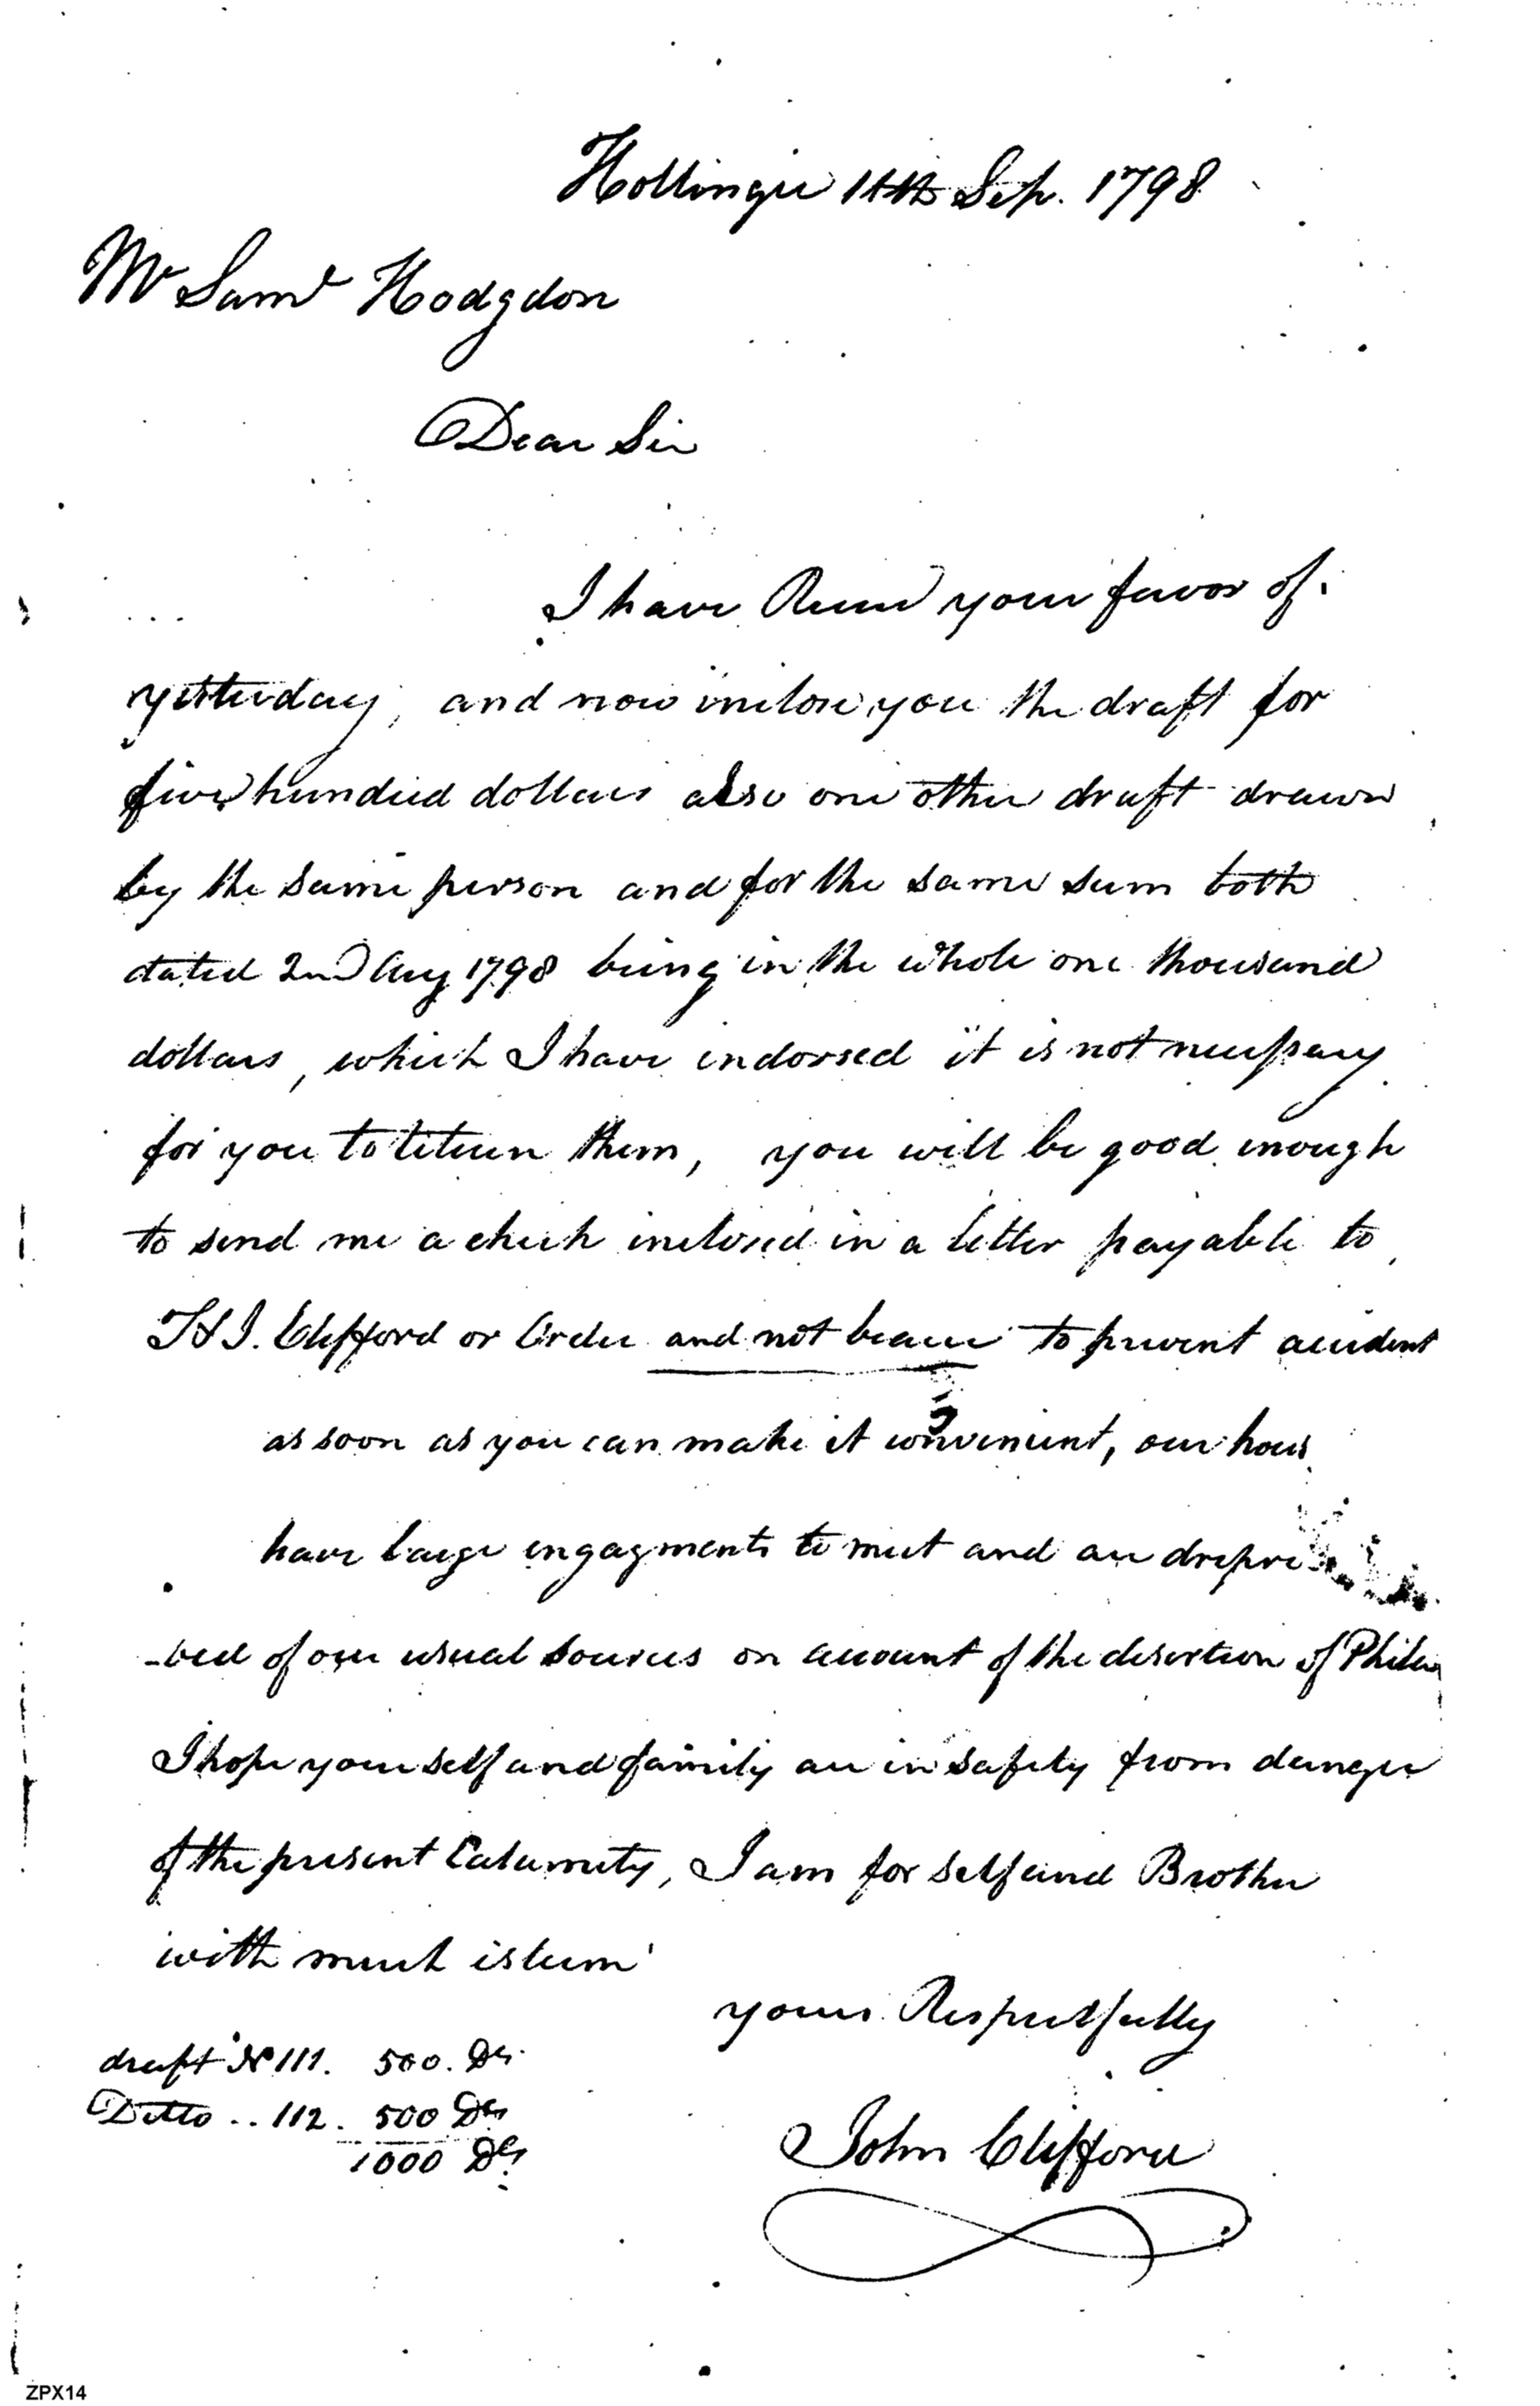 11th Sep. 1798
Mr Saml Hodgdon
Dear Sir
I have Recd your favor of
yesterday, and now inclose you the draft for
five hundred dollars also one other draft drawn
by the same person and for the same sum both
dated 2nd Aug 1798 being in the whole one thousand
dollars, which I have indorsed it is not necessary
for you to return them, you will be good enough
to send me a check inclosed in a letter payable to
T & J. Clifford or Order and not bearer to prevent accident
as soon as you can make it convenient, our hous
have large engagments to meet and are
-ved of our usual sources on account of the desertion of Philea
I hope yourself and family are in safety from danger
of the present Calamity, I am for self and Brother
with much esteem
yours Respectfully
draft No 111. 500. Drs
Ditto .. 112. 500 Drs
1000 Drs
John Clifford
ZPX14